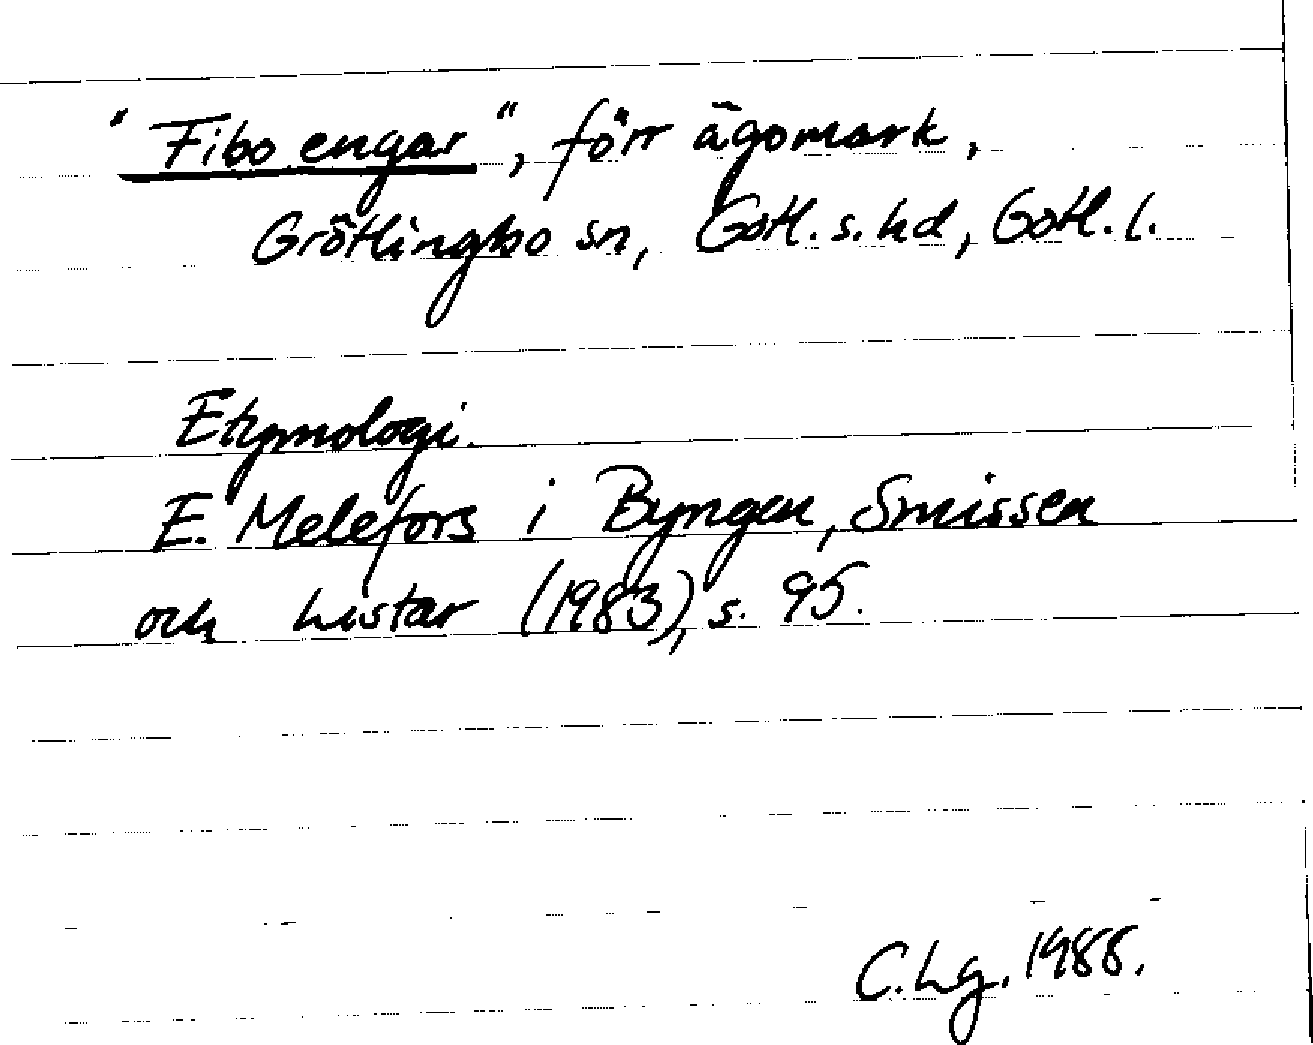 "Fibo engar", förr ägomark,
Grötlingbo sn, Gotl. s. hd, Gotl. l.
Etymologi.
E. Melefors i Byngen, Smissen
och Listar (1983), s. 95.
C. Lg. 1988.